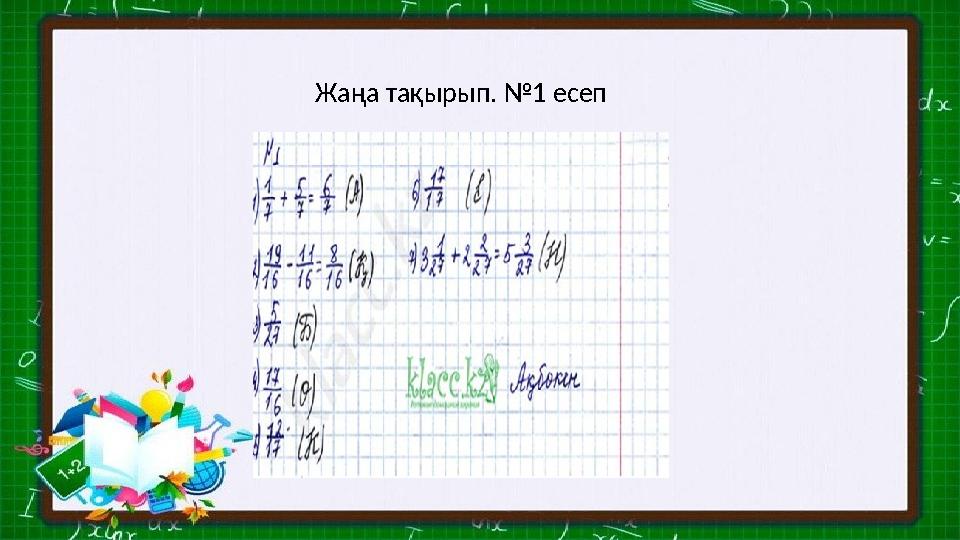 Жаңа тақырып. №1 есеп
№1
1) 1/7 + 5/7 = 6/7 (А)
2) 19/16 - 11/16 = 8/16 (Қ)
3) 5/27 (Б)
4) 17/16 (Ө)
5) 12/17 (К)
6) 17/17 (Е)
7) 3 1/27 + 2 2/27 = 5 3/27 (Н)
klacc.kz
Ақбөкен
1+2